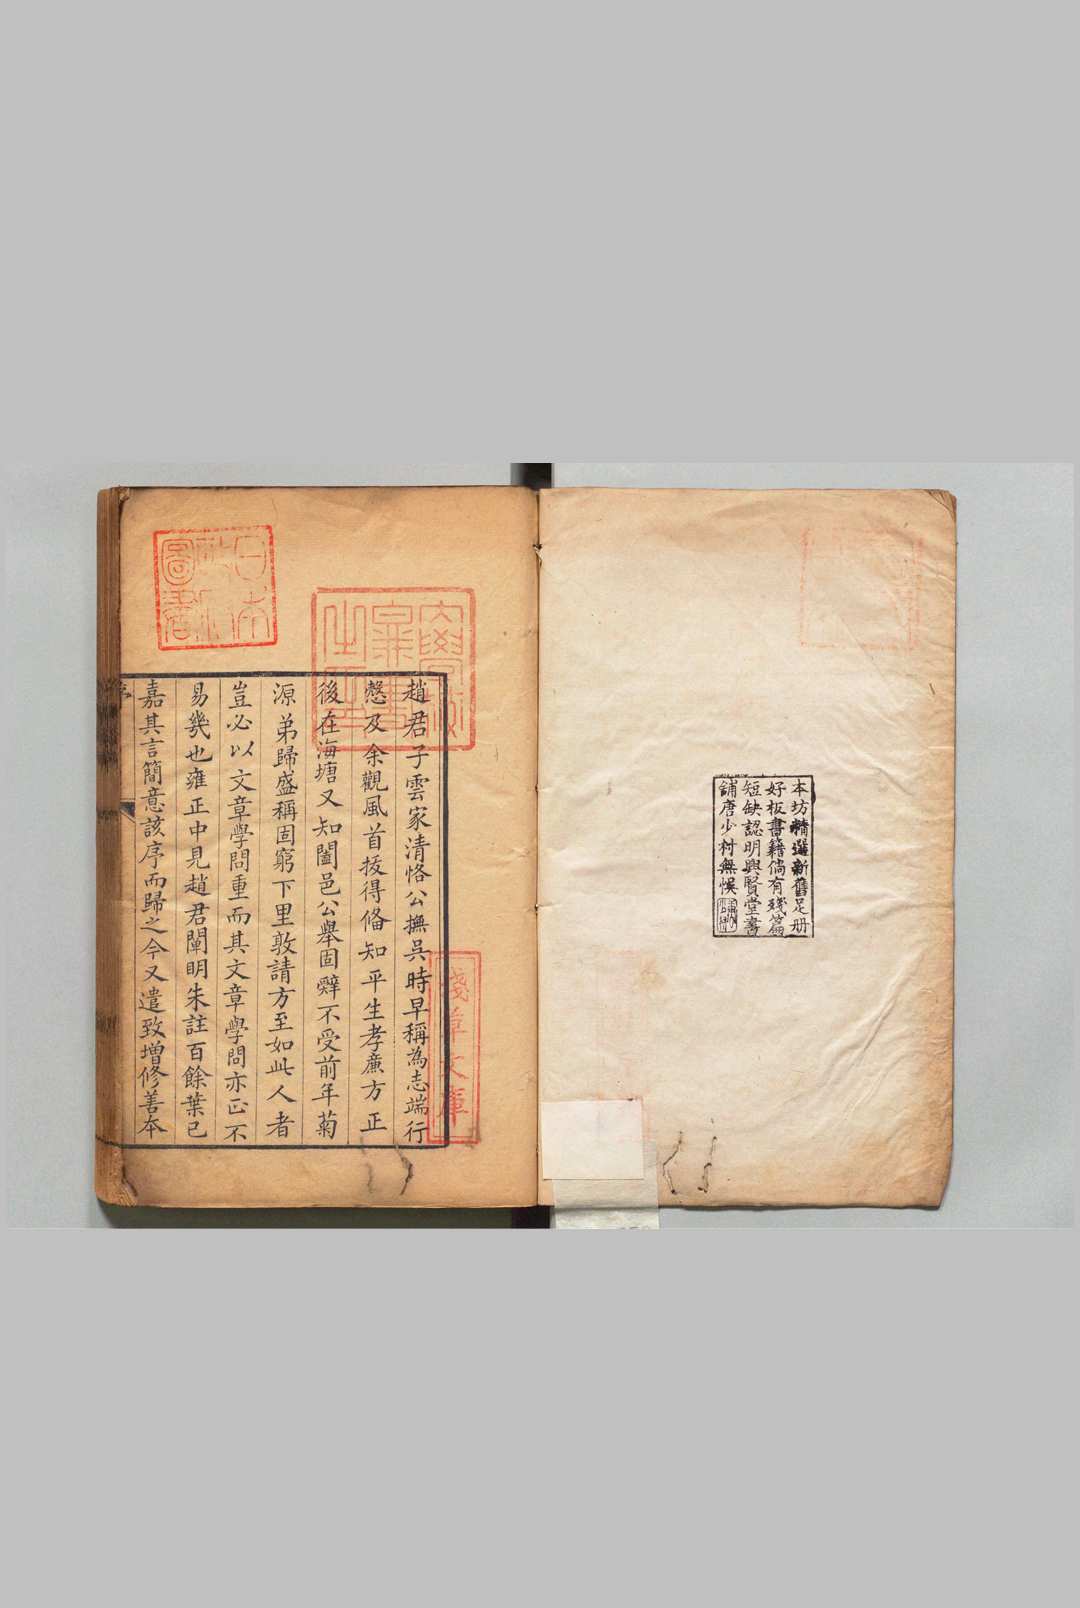 本坊精選新舊足册
好板書籍倘有殘篇
短缺認明興賢堂書
舖唐少村無悞
趙君子雲家清恪公撫吳時早稱為志端行
慤及余觀風首拔得偹知平生孝廉方正
後在海塘又知闔邑公舉固辭不受前年菊
源弟歸盛稱固窮下里敦請方至如此人者
豈必以文章學問重而其文章學問亦正不
易幾也雍正中見趙君闡明朱註百餘葉已
嘉其言簡意該序而歸之今又遣致增修善本
日本
政府
圖書
淺草文庫